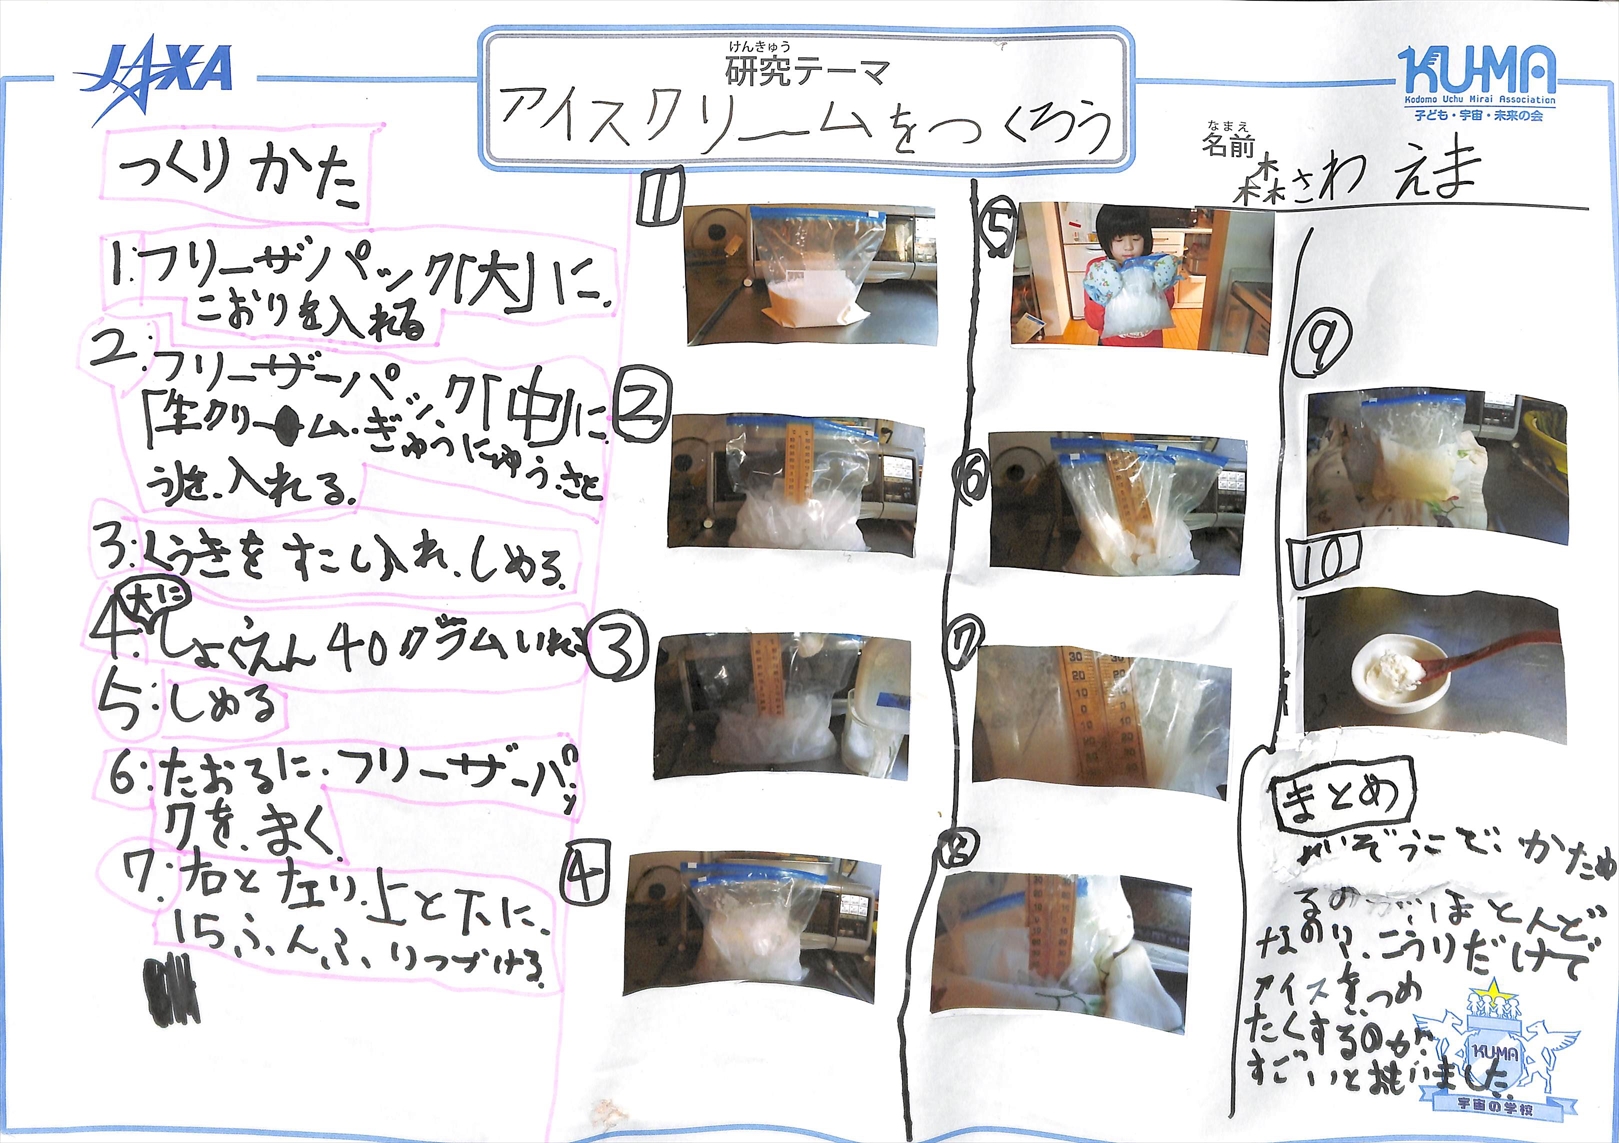 JAXA
けんきゅう
研究テーマ
アイスクリームをつくろう
KU-MA
Kodomo Uchu Mirai Association
子ども・宇宙・未来の会
なまえ
名前
森さわ えま
つくりかた
1.フリーザパック「大」に.
こおりを入れる
2.フリーザーパック「中」に
「生クリーム・ぎゅうにゅう.さと
うを.入れる.
3.くうきをすこし入れ.しめる.
大に
4.しょくえん40グラムいれる
5:しめる
6:たおるに.フリーザーパッ
クを.まく.
7.右と左り.上と下に.
15ふんふりつづける.
1
2
3
4
5
6
7
30 30
20 20
10 10
0 0
10 10
20 20
30 30
8
9
10
まとめ
れいぞうこで.かため
るのが.ほとんど
なのに.こうりだけで
アイスを.つめ
たくするのが.
すごいとおもいました.
KU-MA
宇宙の学校